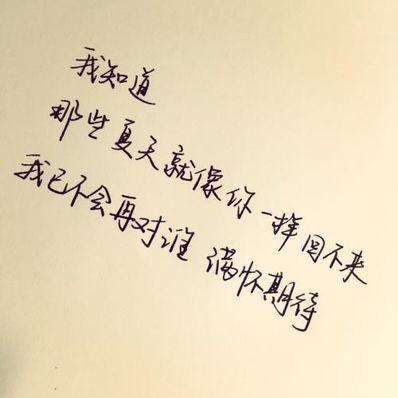 我知道
那些夏天就像你一样回不来
我已不会再对谁 满怀期待